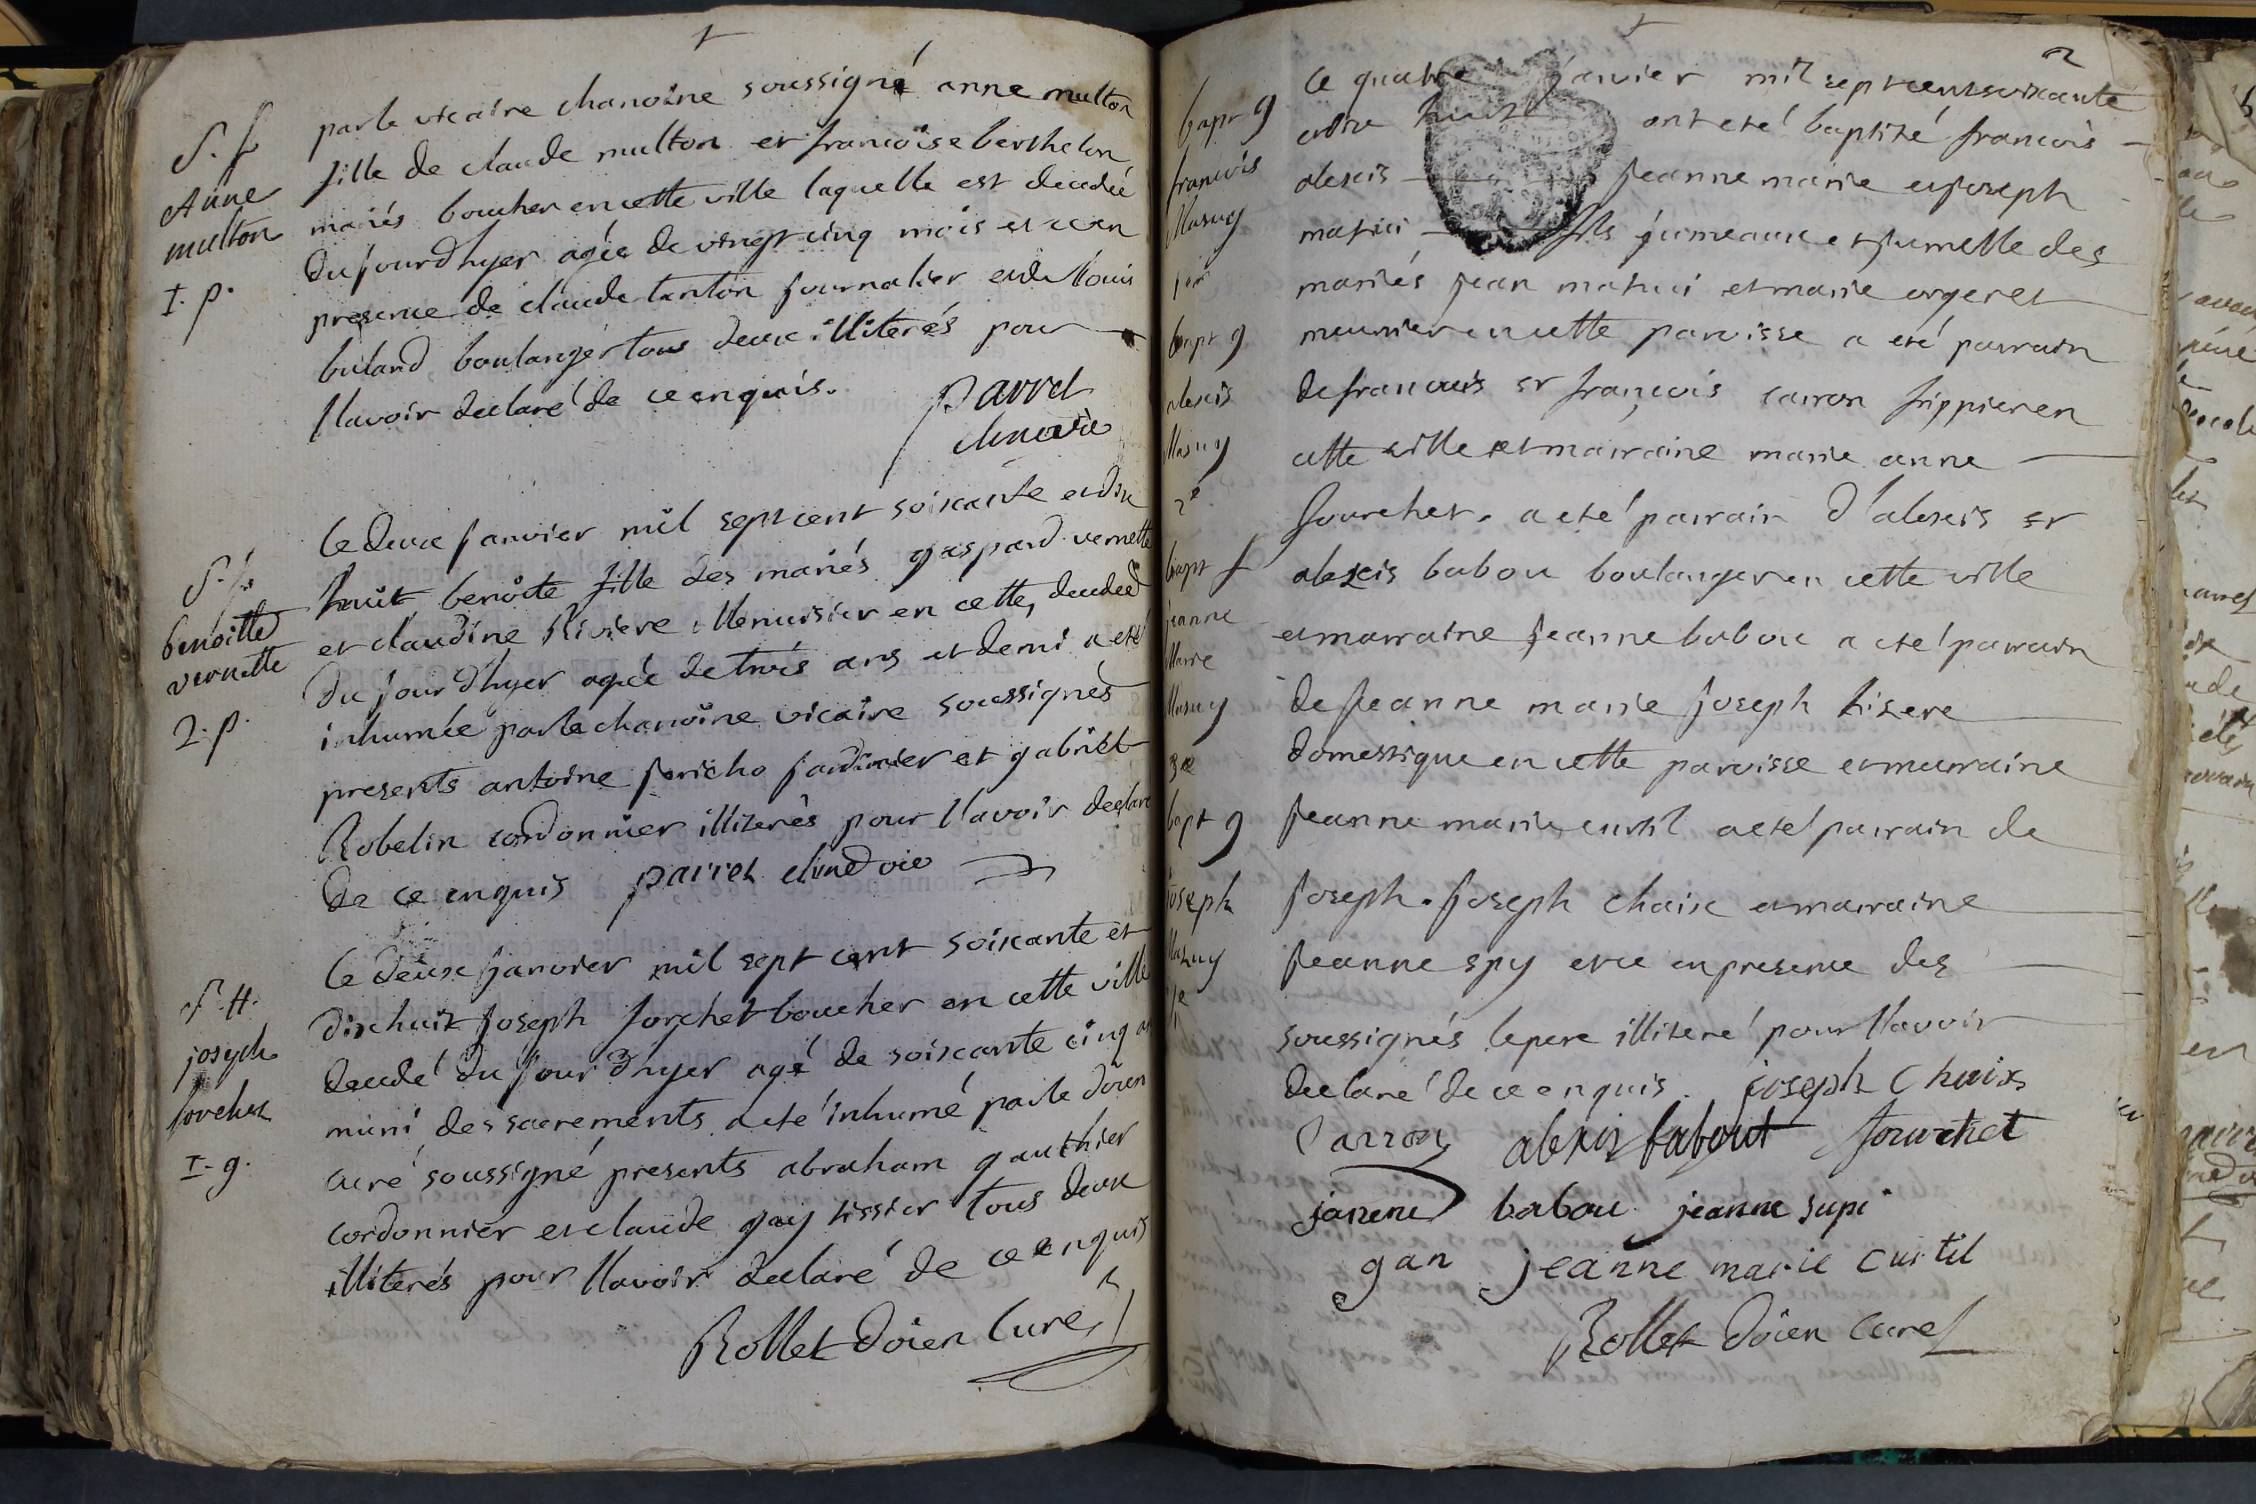 par le vicaire chanoine soussigné anne multon
S. f. fille de claude multon et francoise berthelon
Anne mariés boucher en cette ville laquelle est decedeé
multon du jourdhyer agée de vingt cinq mois et ce en
I. p. presence de claude tanton journalier et de Mouis
buland boulanger tous deux illiterés pour
llavoir declaré de ce enquis. parret
chnovic
Le deux janvier mil sept cent soixante et dix
S. f. huit benoite fille des mariés gaspard vernette
benoitte et claudine Riviere Menuisier en cette, decedeé
vernette du jour d'hyer agée de trois ans et demi a eté
2. p. inhumée par le chanoine vicaire soussignes
presents antoine jericho jardinier et gabriel
Robelin cordonnier illiterés pour llavoir declaré
de ce enquis parret
Le deux janvier mil sept cent soixante et
S. H. dixhuit joseph forchet boucher en cette ville
joseph decedé du jour d'hyer agé de soixante cinq
forchet muni des sacrements a eté inhumé par le doien
I. g. curé soussigné presents abraham gauthier
cordonnier et claude gay tissier tous deux
illiterés pour llavoir declaré de ce enquis
Rollet doien Curé
2
bapt g Ce quatre janvier mil sept cent soixante
et dix huit ont eté baptizé francois
francois alexis jeanne marie et joseph
Masuy fils jumeaux et jumelle des
1er mariés jean et marie orgeret
bapt g meunier en cette paroisse a eté parrain
alexis de francois sr françois carron frippier en
Masuy cette ville et marraine marie anne
2e fourchet. a eté parrain d'alexis sr
bapt f alexis babou boulanger en cette ville
jeanne et marraine jeanne babou a eté parrain
Marie
Masuy de jeanne marie joseph
3e domestique en cette paroisse et marraine
bapt g jeanne marie curtil a eté parrain de
joseph joseph. joseph chaix et marraine
Masuy jeanne spy et ce en presence des
soussignés le pere illiteré pour llavoir
declaré de ce enquis. joseph Chaix
Carron alexis babout fourchet
babou jeanne supi
gan jeanne marie Curtil
Rollet doien Curé